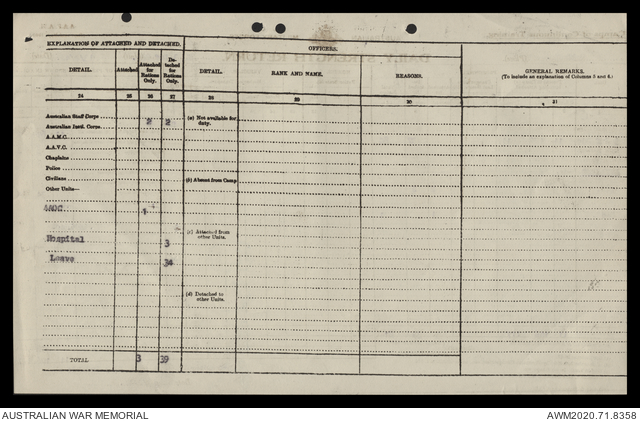 EXPLANATION OF ATTACHED AND DETACHED.
OFFICERS.
GENERAL REMARKS.
(To include an explanation of Columns 5 and 6.)
DETAIL.
Attached
Attached for Rations Only.
Detached for Rations Only.
DETAIL.
RANK AND NAME.
REASONS.
24
25
26
27
28
29
30
31
Australian Staff Corps
2 2
(a) Not available for duty.
Australian Instl. Corps
A.A.M.C.
A.A.V.C.
Chaplains
Police
Civilians
(b) Absent from Camp
Other Units—
AAOC 1
(c) Attached from other Units.
Hospital 3
Leave 34
(d) Detached to other Units.
TOTAL 3 39
AUSTRALIAN WAR MEMORIAL
AWM2020.71.8358